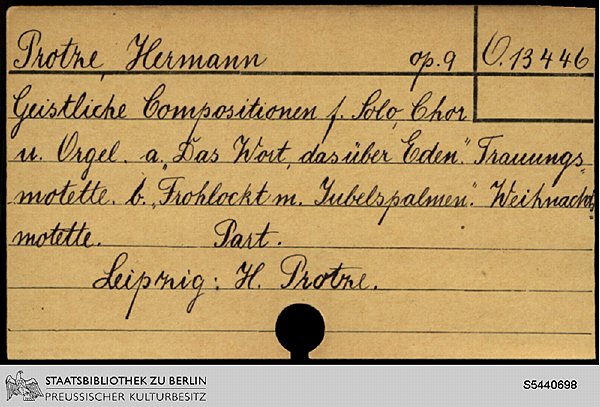 Protze, Hermann op. 9 O. 13446
Geistliche Compositionen f. Solo, Chor
u. Orgel. a. „Das Wort, das über Eden." Trauungs-
motette. b. „Frohlockt m. Jubelspalmen". Weihnachts-
motette. Part.
Leipzig: H. Protze.
STAATSBIBLIOTHEK ZU BERLIN
PREUSSISCHER KULTURBESITZ
S5440698